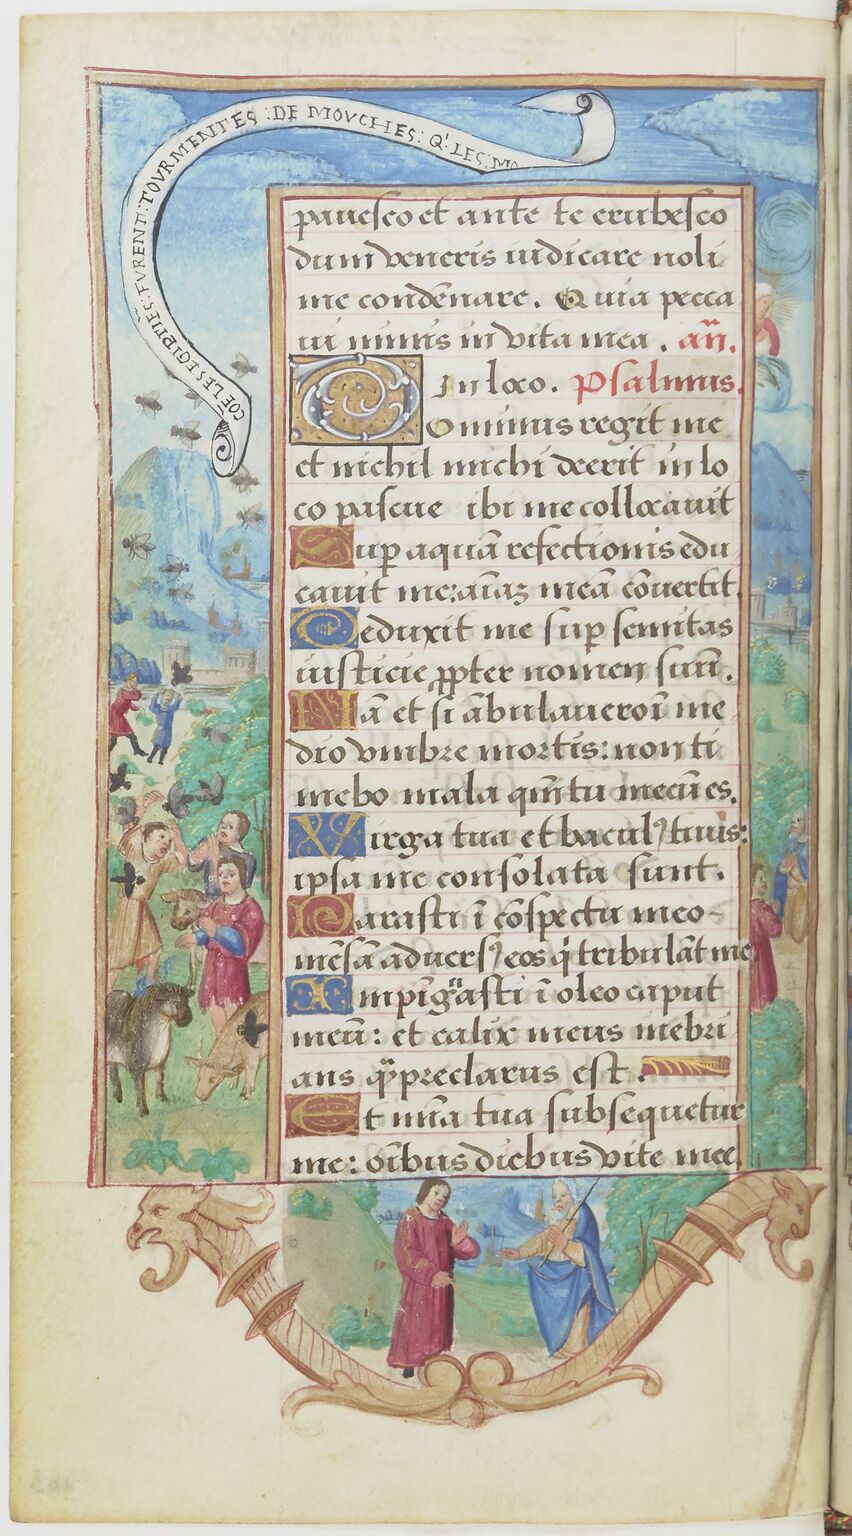 COE LES EGIPTIES: FVRENT: TOVRMENTES: DE MOVCHES: Q' LES: MO
pauesco et ante te erubesco
dum veneris iudicare noli
me condēnare. Quia pecca
ui nimis in vita mea. añ.
In loco. Psalmus.
Dominus regit me
et nichil michi deerit in lo
co pascue ibi me collocauit
Sup aquā refectionis edu
cauit me: aīaʒ meā cōuertit.
Deduxit me sup semitas
iusticie ꝓpter nomen suū.
Nā et si ābulauero ī me
dio vmbre mortis: non ti
mebo mala qm̄ tu mecū es.
Virga tua et bacul9 tuus:
ipsa me consolata sunt.
Parasti ī cōspectu meo
mēsā aduers9 eos q̇ tribulāt me
Impīgͣasti ī oleo caput
meū: et calix meus inebri
ans qͣ preclarus est.
Et mīa tua subsequetur
me: oībus diebus vite mee.